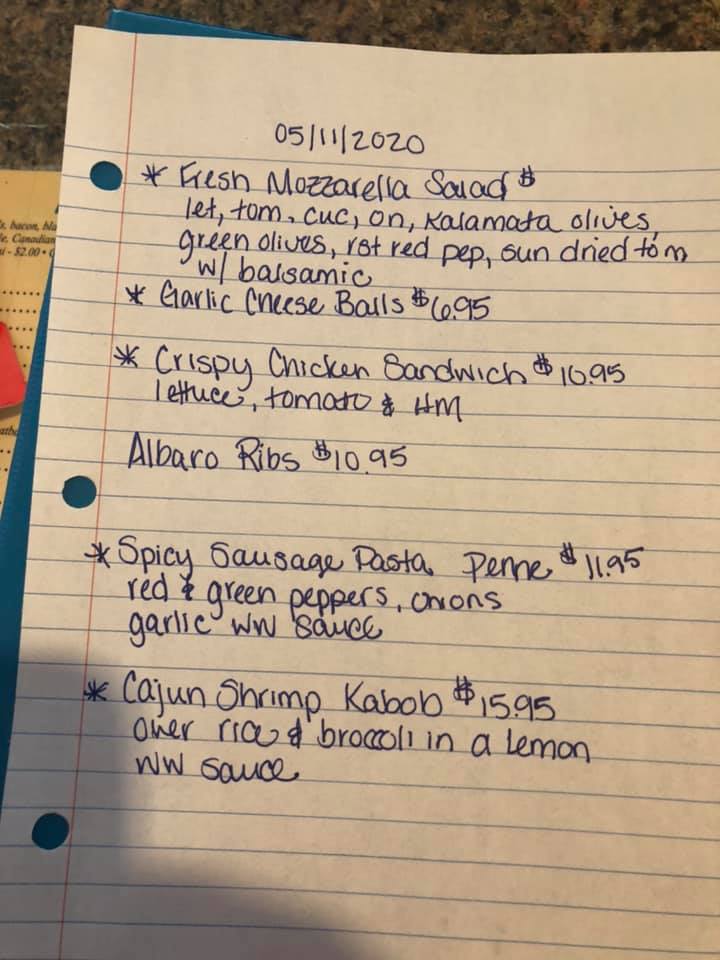 05/11/2020
* Fresh Mozzarella Salad $
let, tom, cuc, on, Kalamata olives,
green olives, rst red pep, sun dried tom
w/ balsamic
* Garlic Cheese Balls $6.95
* Crispy Chicken Sandwich $10.95
lettuce, tomato & HM
Albaro Ribs $10.95
* Spicy Sausage Pasta Penne $11.95
red & green peppers, onions
garlic ww sauce
* Cajun Shrimp Kabob $15.95
over rice & broccoli in a lemon
ww sauce
bacon, bla
Canadian
- $2.00